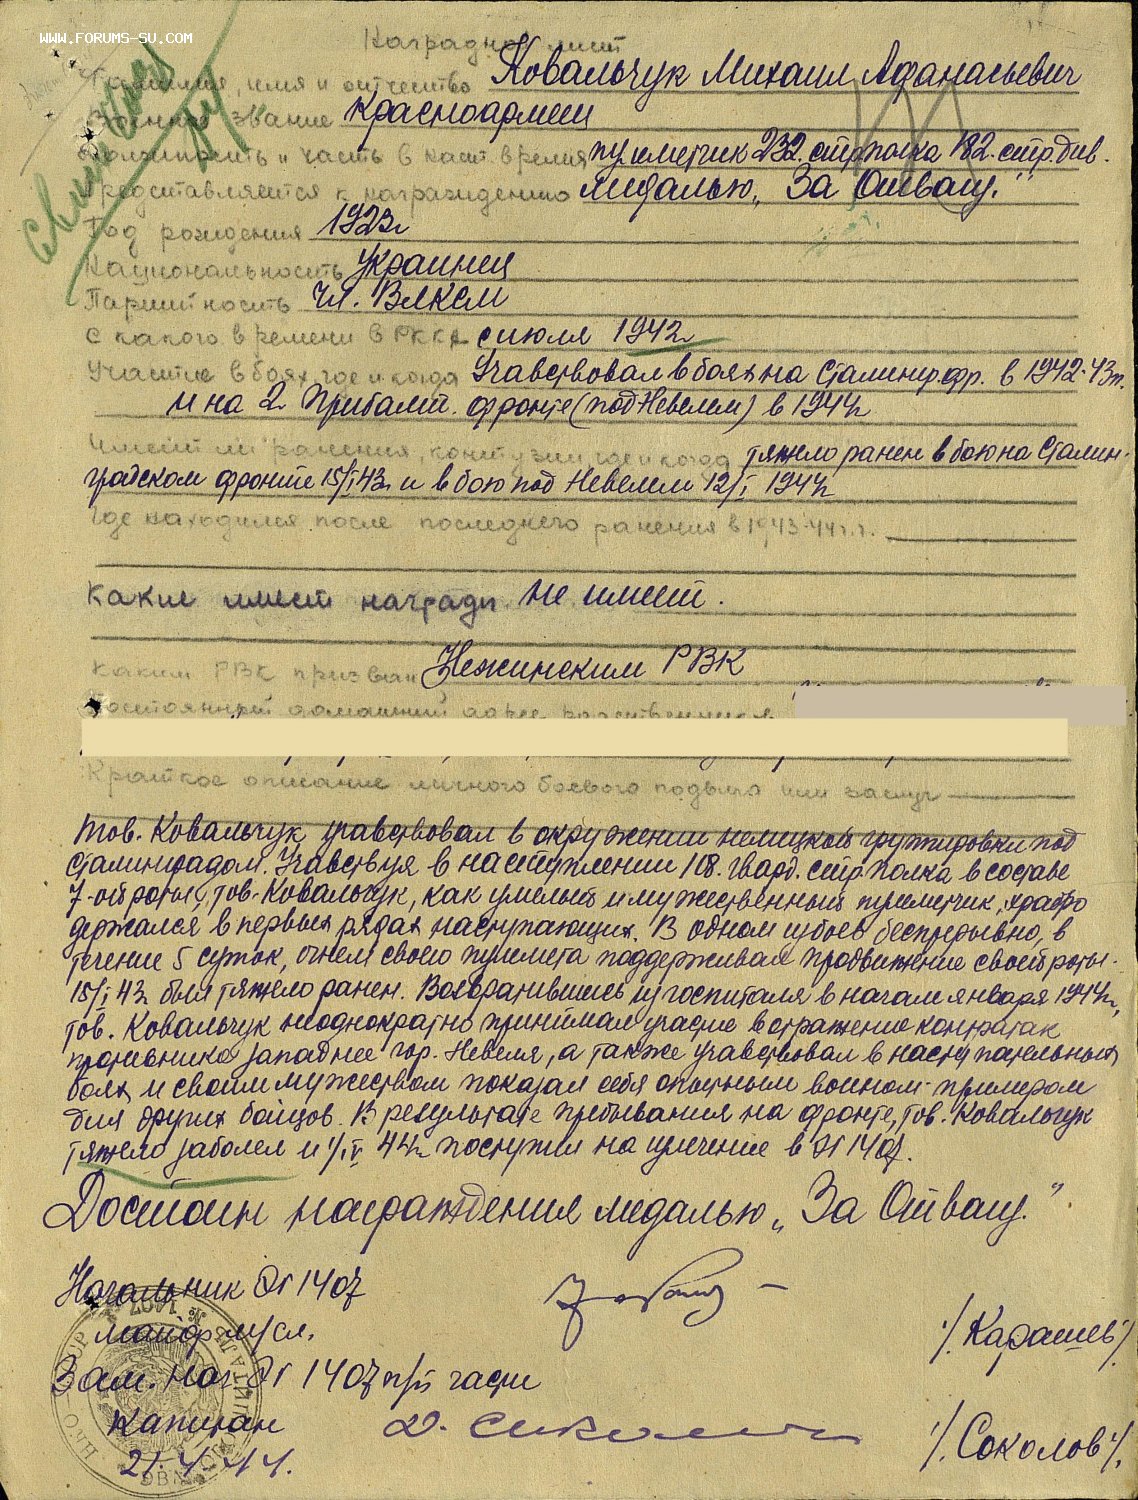 WWW.FORUMS-SU.COM
Наградной лист
Фамилия, имя и отчество Ковальчук Михаил Афанасьевич
Военное звание Красноармеец
Должность и часть в наст. время пулеметчик 232. стр. полка 182. стр. див.
Представляется к награждению медалью „За Отвагу."
Год рождения 1923 г
Национальность Украинец
Партийность чл. ВЛКСМ
С какого времени в РККА с июля 1942 г
Участие в боях, где и когда Учавствовал в боях на Сталингр. фр. в 1942-43 гг.
и на 2 Прибалт. фронте (под Невелем) в 1944 г
Имеет ли ранения, контузии где и когда тяжело ранен в бою на Сталин-
градском фронте 15/I 43 г. и в бою под Невелем 12/I 1944 г
Где находился после последнего ранения в 1943-44 г.г.
Какие имеет награды не имеет.
Каким РВК призван Нежинским РВК
Постоянный домашний адрес родственников
Краткое описание личного боевого подвига или заслуг
Тов. Ковальчук учавствовал в окружении немецкой группировки под
Сталинградом. Учавствуя в наступлении 108. гвард. стр. полка в составе
7-ой роты, тов. Ковальчук, как умелый и мужественный пулеметчик, храбро
держался в первых рядах наступающих. В одном из боев беспрерывно, в
течение 5 суток, огнем своего пулемета поддерживал продвижение своей роты.
15/I 43 г. был тяжело ранен. Возвратившись из госпиталя в начале января 1944 г.,
тов. Ковальчук неоднократно принимал участие в отражение контратак
противника западнее гор. Невеля, а также учавствовал в наступательных
боях и своим мужеством показал себя опытным воином - примером
для других бойцов. В результате пребывания на фронте, тов. Ковальчук
тяжело заболел и 1/IV 44 г. поступил на излечение в ЭГ 1407.
Достоин награждения медалью „За Отвагу."
Начальник ЭГ 1407
майор м/сл.
/Карашев/
Зам. нач. ЭГ 1407 п/п части
капитан
/Соколов/
21.4.44.